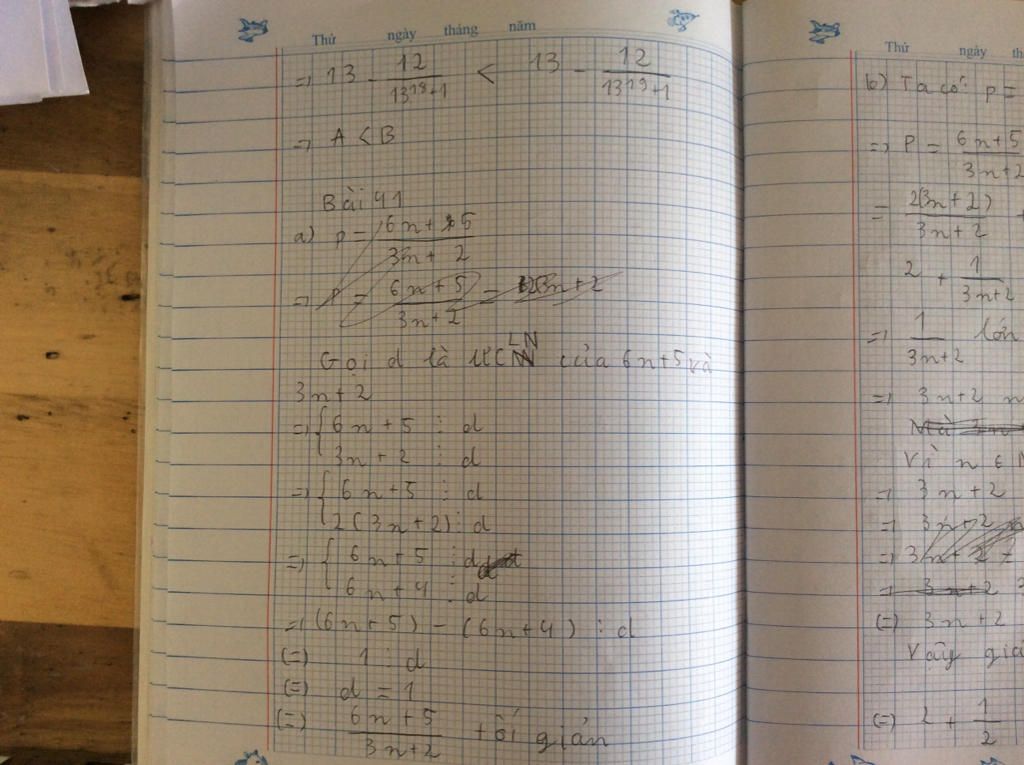 Thứ ngày tháng năm
=> 13 - 12/(13^18+1) < 13 - 12/(13^19+1)
=> A < B
Bài 41
a) P = (6n+5)/(3n+2)
=> P = (6n+5)/(3n+2) = 2(3n+2
Gọi d là ƯCLN của 6n+5 và
3n+2
=> { 6n+5 ⋮ d
3n+2 ⋮ d
=> { 6n+5 ⋮ d
2(3n+2) ⋮ d
=> { 6n+5 ⋮ d
6n+4 ⋮ d
=> (6n+5) - (6n+4) ⋮ d
(=) 1 ⋮ d
(=) d = 1
(=) (6n+5)/(3n+2) tối giản
Thứ ngày th
b) Ta có: P =
=> P = (6n+5)/(3n+2
= 2(3n+2)/(3n+2) +
2 + 1/(3n+2
=> 1/(3n+2) lớn
=> 3n+2 n
Mà 3n
Vì n ∈ N
=> 3n+2
=> 3n+2
=> 3n+2 =
=> 3n+2
(=) 3n+2
Vậy giá
(=) 2 + 1/2